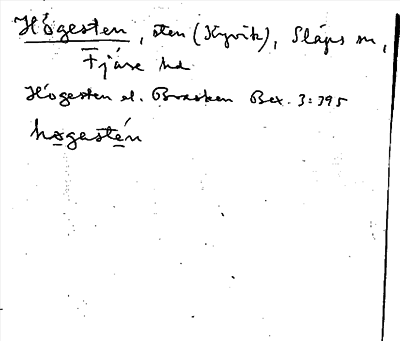 Högesten, sten (Kyvik), Släps sn,
Fjäre hd
Högesten el. Brasken Bex. 3:395
høgestén